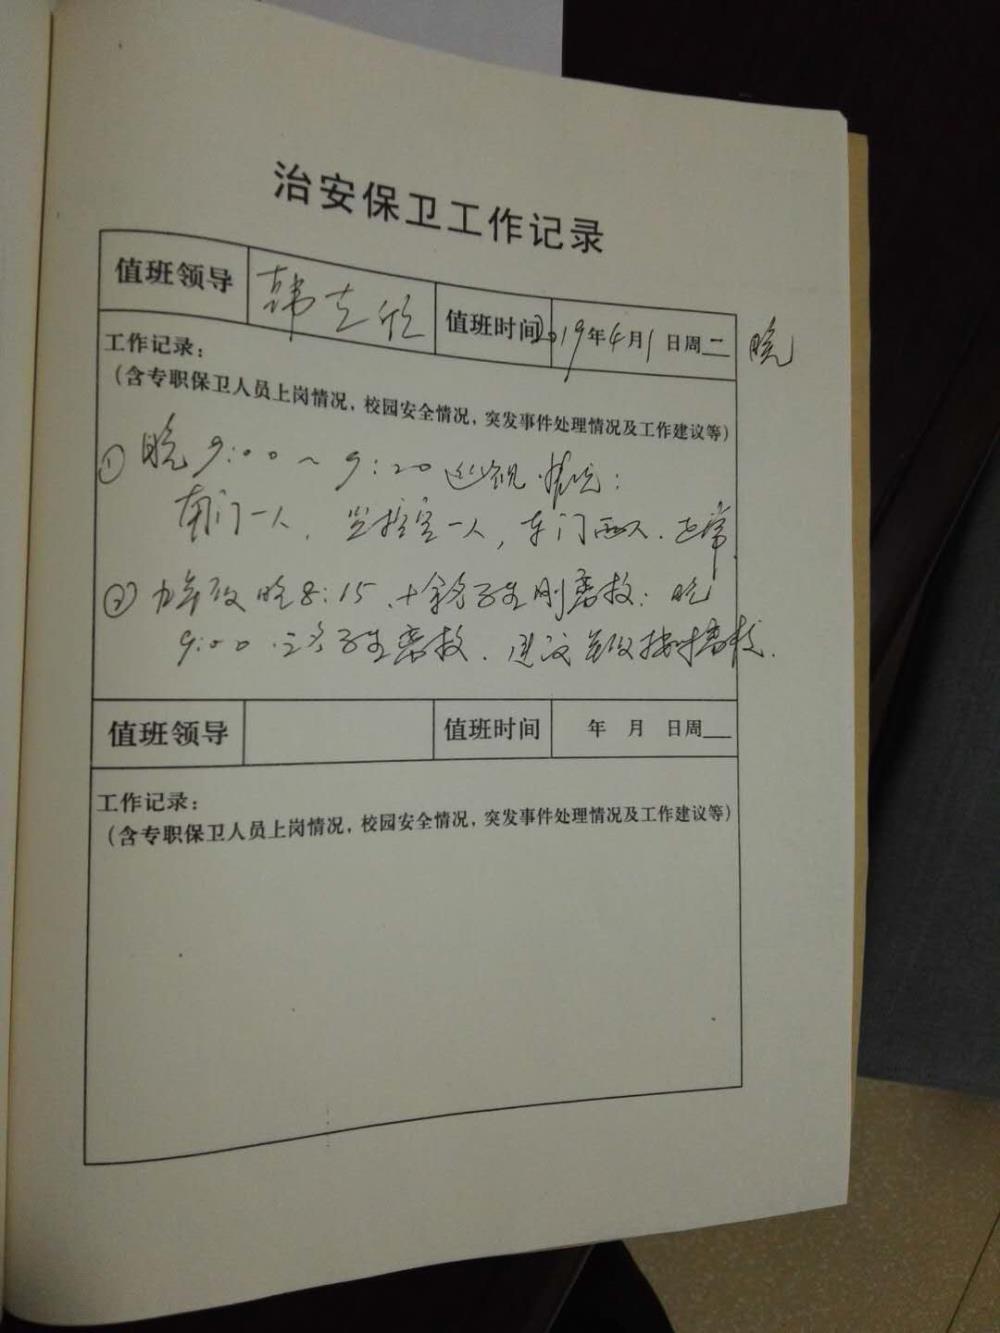 治安保卫工作记录
值班领导 韩立欣 值班时间 2019年4月1日周二 晚
工作记录：
（含专职保卫人员上岗情况，校园安全情况，突发事件处理情况及工作建议等）
① 晚9:00～9:20巡视情况：
南门一人，监控室一人，东门两人．正常．
② 九年级晚8:15．十余名学生刚离校；晚
9:00．三名学生离校．建议年级按时离校．
值班领导 值班时间 年 月 日周
工作记录：
（含专职保卫人员上岗情况，校园安全情况，突发事件处理情况及工作建议等）